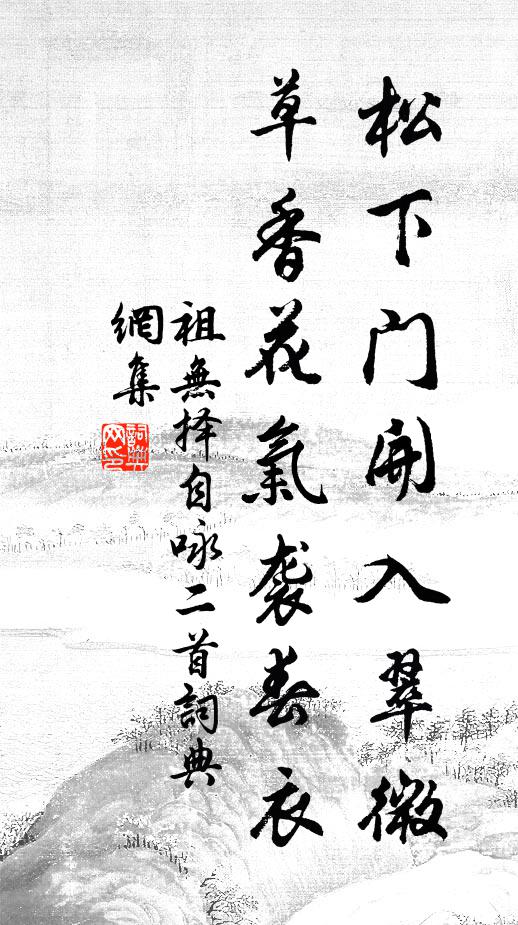 松下门開入翠微
草香花氣袭春衣
祖無择自咏二首詞典
網集